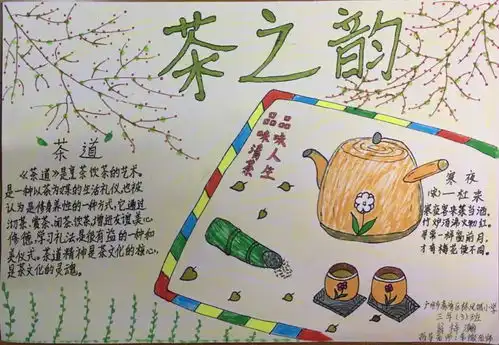 茶之韵
茶道
《茶道》是烹茶饮茶的艺术。
是一种以茶为媒的生活礼仪,也被
认为是修身养性的一种方式,它通过
沏茶、赏茶、闻茶、饮茶、增进友谊,美心
修德,学习礼法,是很有益的一种和
美仪式。茶道精神是茶文化的核心,
是茶文化的灵魂。
品味人生
品味清茶
寒夜
(宋)—杜耒
寒夜客来茶当酒,
竹炉汤沸火初红。
寻常一样窗前月,
才有梅花便不同。
小学
三年(3)班
指导老师: